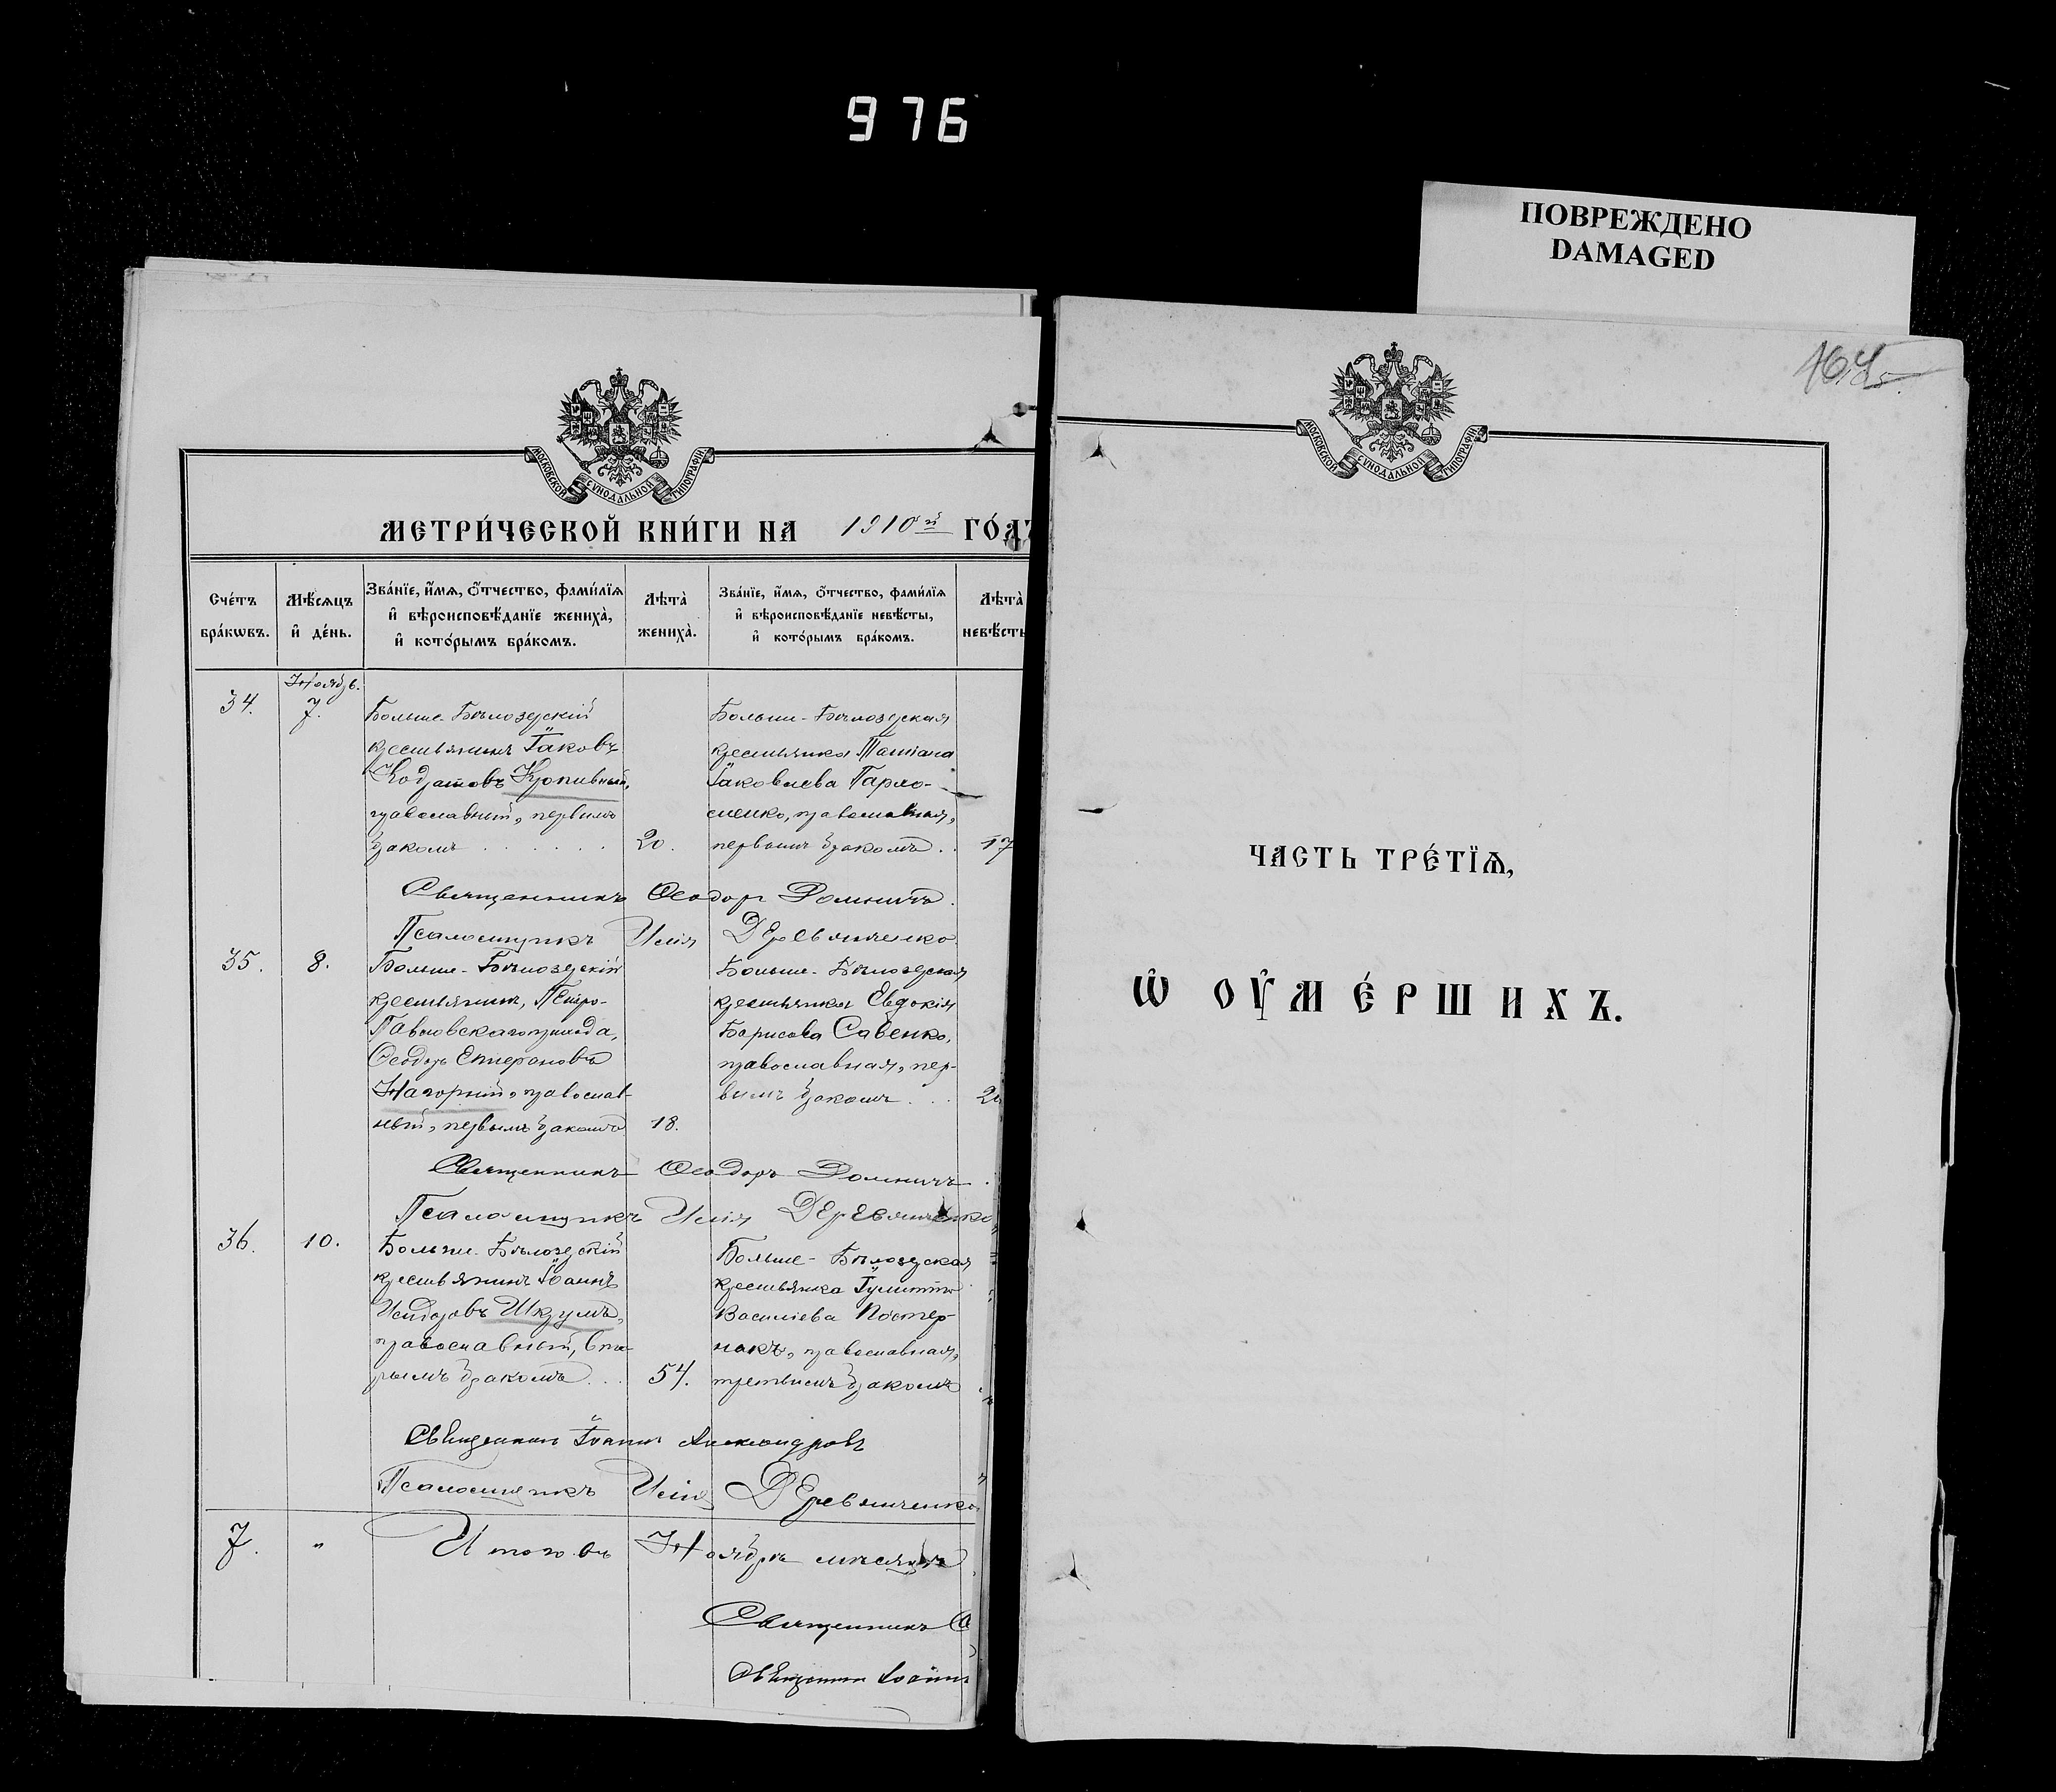 976
ПОВРЕЖДЕНО
DAMAGED
164
МОСКОВСКОЙ СѴНОДАЛЬНОЙ ТИПОГРАФІИ
МЕТРИ́ЧЕСКОЙ КНИ́ГИ НА 1910й ГО́ДЪ
Сче́тъ бра́кѡвъ.
Мѣ́сяцъ и҆ де́нь.
Зва́нїе, и҆́мѧ, ѻ҆́тчество, фами́лїѧ и҆ вѣроисповѣ́данїе жениха̀, и҆ кото́рымъ бра́комъ.
Лѣта̀ жениха̀.
Зва́нїе, и҆́мѧ, ѻ҆́тчество, фами́лїѧ и҆ вѣроисповѣ́данїе невѣ́сты, и҆ кото́рымъ бра́комъ.
Лѣта̀ невѣ́сты
Ноябрь.
34. 7.
Больше-Бѣлозерскій
крестьянинъ Іаковъ
Кодратовъ Кропивный,
православный, первымъ
бракомъ . . . . . . 20.
Больше-Бѣлозерская
крестьянка Татіана
Іаковлева Пархо-
менко, православная,
первымъ бракомъ . . 17
Священникъ Ѳеодоръ Домничъ.
Псаломщикъ Илія Деревянченко.
35. 8.
Больше-Бѣлозерскій
крестьянинъ, Петро-
Павловскаго прихода,
Ѳеодоръ Стефановъ
Нагорный, православ-
ный, первымъ бракомъ 18.
Больше-Бѣлозерская
крестьянка Евдокія
Борисова Савенко,
православная, пер-
вымъ бракомъ . . .
Священникъ Ѳеодоръ Домничъ.
Псаломщикъ Илія Деревянченко
36. 10.
Больше-Бѣлозерскій
крестьянинъ Іоаннъ
Исидоровъ Шкрумъ,
православный, вто-
рымъ бракомъ . . . 54.
Больше-Бѣлозерская
крестьянка Іулитта
Василіева Постер-
накъ, православная,
третьимъ бракомъ
Священникъ Іоаннъ Александровъ
Псаломщикъ Илія Деревянченко
7. " Итого въ Ноябрѣ мѣсяцѣ
Священникъ Ѳ
Священникъ Іоаннъ
МОСКОВСКОЙ СѴНОДАЛЬНОЙ ТИПОГРАФІИ
ЧАСТЬ ТРЕ́ТЇѦ,
Ѡ҆ ОУ҆МЕ́РШИХЪ.